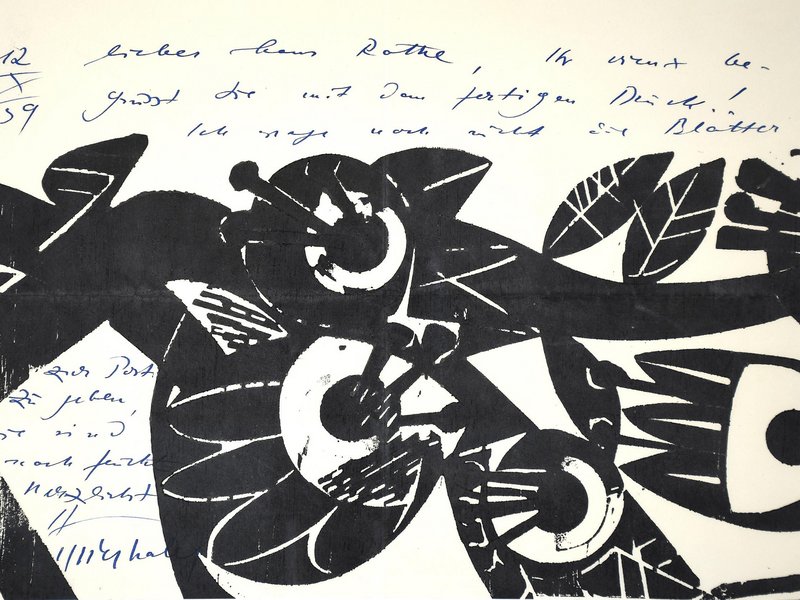 12 lieber Hans Rothe, Ihr be-
X
59 grüsst Sie mit dem fertigen Druck!
Ich wage noch nicht die Blätter
zur Post
zu geben,
sie sind
noch feucht
herzlichst